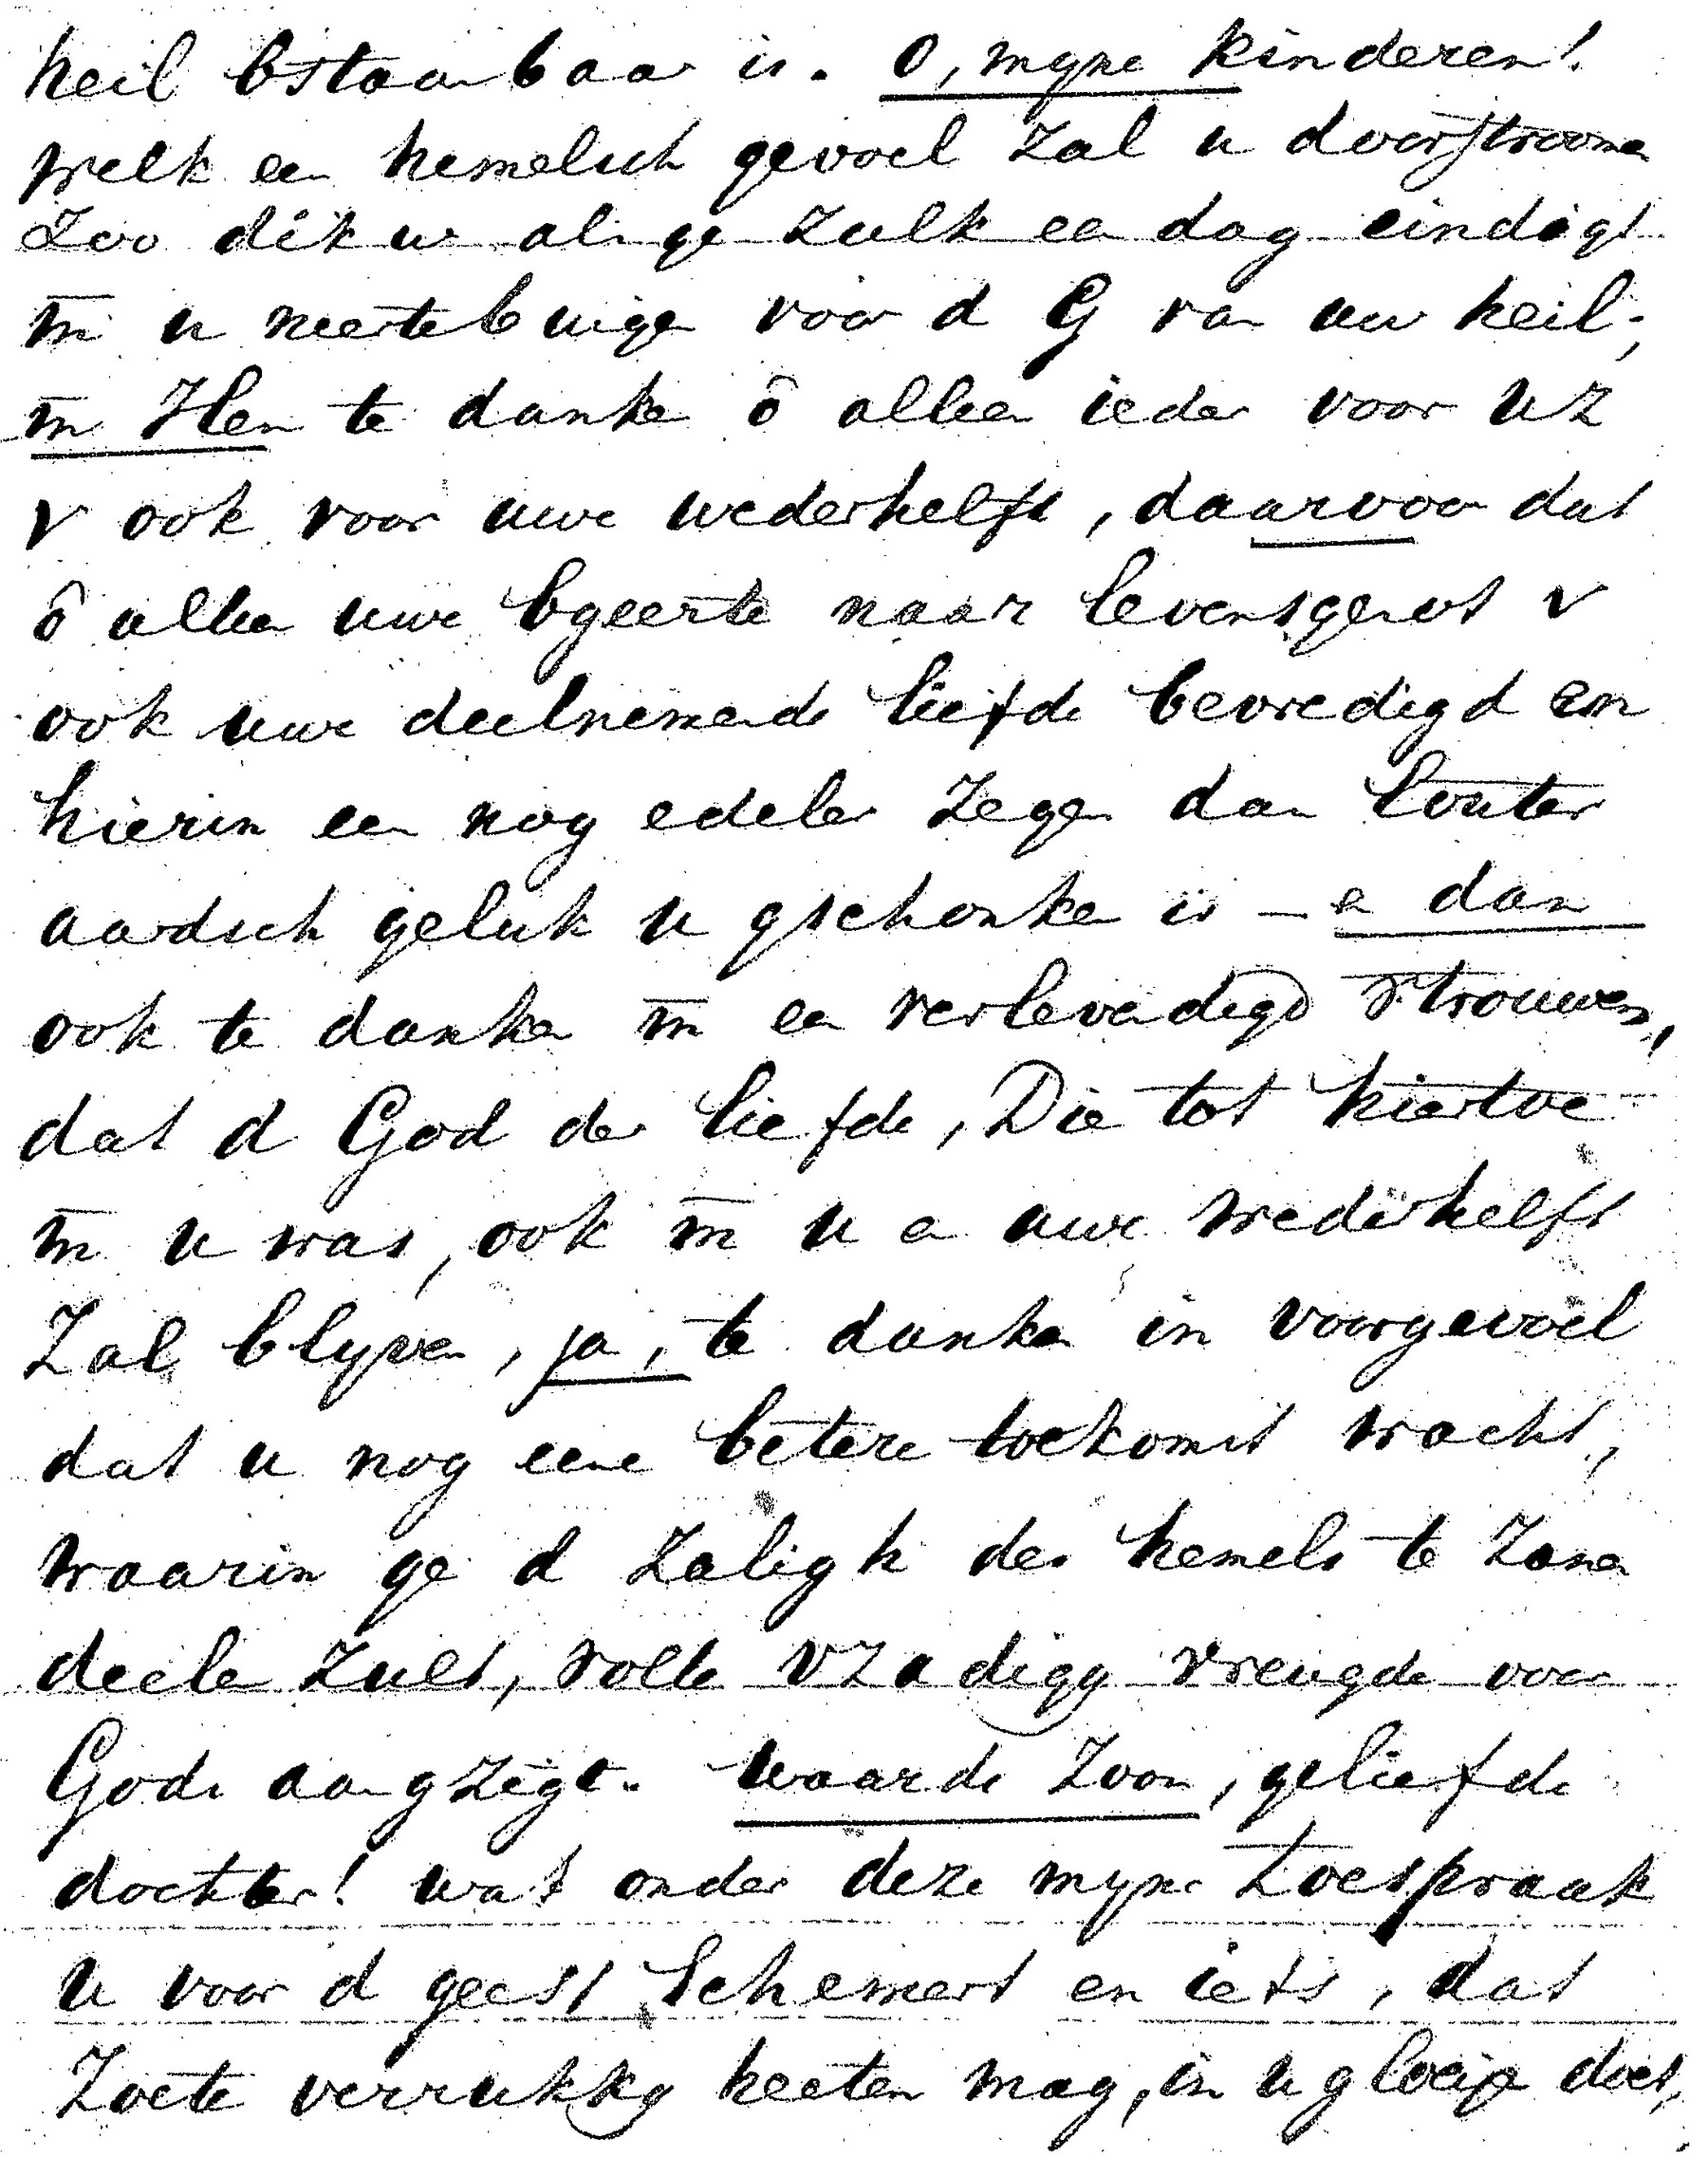 heil bstaanbaar is. O, myne kinderen!
welk een hemelsch gevoel zal u doorstroomen
Zoo dikw als ge zulk een dag eindigt
m̅ u neertebuigen voor d G van uw heil;
m̅ Hem te danken ô alleen ieder voor uz
v ook voor uwe wederhelft, daarvoor dat
ô alleen uwe bgeerte naar levensgenot v
ook uwe deelnemende liefde bevredigd en
hierin een nog edeler zegen dan louter
aardsch geluk u gschonken is – e dan
ook te danken m̅ een verlevendigd vtrouwen,
dat d God der liefde, Die tot hiertoe
m̅ u was, ook m̅ u e uwe wederhelft
Zal blyven, ja, te danken in voorgevoel
dat u nog eene betere toekomst wacht,
waarin ge d zaligh des hemels te zamen
deelen zult, volle vzadigg vreugde voor
Gods aangzigt. Waarde Zoon, geliefde
dochter! wat onder deze myne toespraak
u voor d geest schemert en iets, dat
Zoete verrukkg heeten mag, in u gloeijen doet,